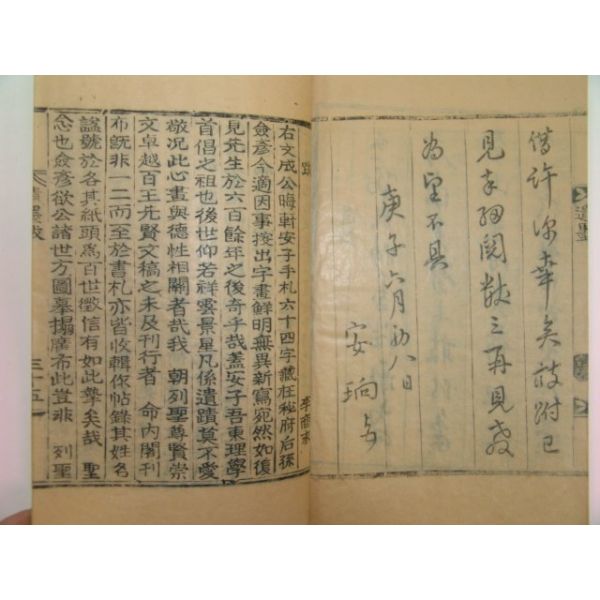 遺墨
借許深幸矣 附已
見本細閱數三再見教
為望不具
庚子六月初八日
安珦
跋
右文成公晦軒安子手札六十四字藏在秘府后孫
僉彦今適因事搜出字畫鮮明無異新寫宛然如復
見先生於六百餘年之後奇乎哉盖安子吾東理學
首倡之祖也後世仰若祥雲景星凡係遺蹟莫不愛
敬况此心畫與德性相關者哉我 朝列聖尊賢崇
文卓越百王先賢文稿之未及刊行者 命內閣刊
布旣非一二而至於書札亦皆收輯作帖錄其姓名
謚號於各其紙頭爲百世徵信有如此 矣哉 聖
念也僉彦欲公諸世方圖摹搨廣布此豈非 列聖
遺墨跋
三十五